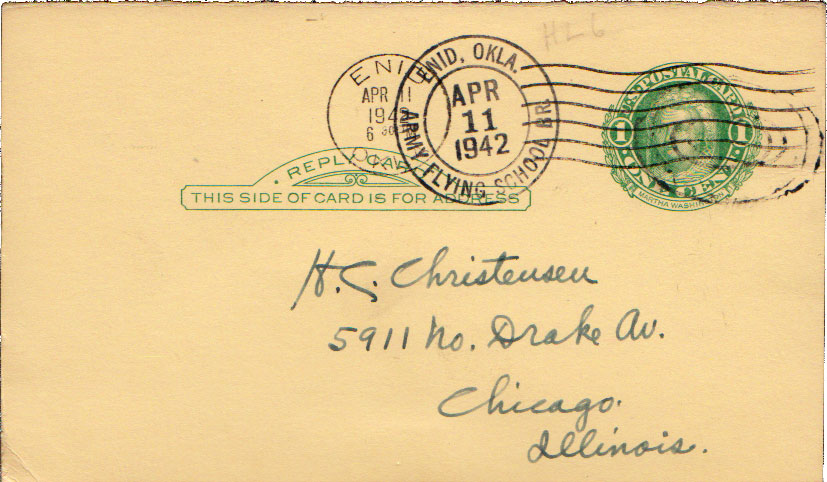 HL6
ENID
APR 11
1942
6 30
OKLA
ENID, OKLA.
APR
11
1942
ARMY FLYING SCHOOL BR.
U.S. POSTAL CARD
1 1
ONE CENT
MARTHA WASHINGTON
REPLY CARD
THIS SIDE OF CARD IS FOR ADDRESS
H. C. Christensen
5911 No. Drake Av.
Chicago.
Illinois.